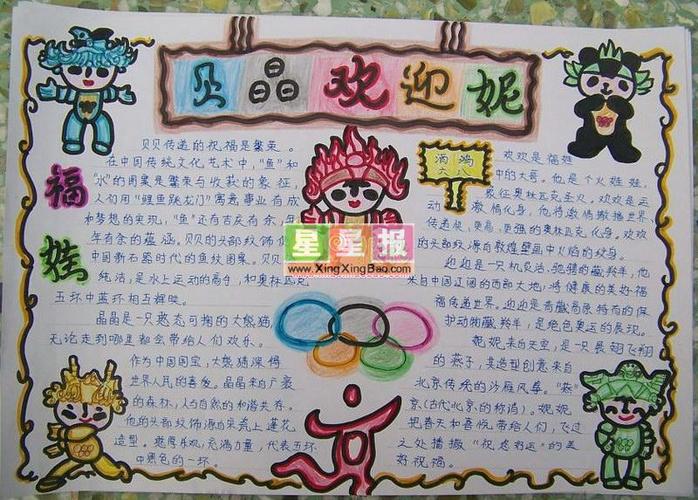 贝晶欢迎妮
福娃
贝贝传递的祝福是繁荣。
在中国传统文化艺术中，“鱼”和
“水”的图案是繁荣与收获的象征，
人们用“鲤鱼跳龙门”寓意事业有成
和梦想的实现，“鱼”还有吉庆有余、年
年有余的蕴涵。贝贝的头部纹饰
中国新石器时代的鱼纹图案。贝贝
纯洁，是水上运动的高手，和奥林匹克
五环中蓝环相互辉映。
晶晶是一只憨态可掬的大熊猫，
无论走到哪里都会带给人们欢乐。
作为中国国宝，大熊猫深得
世界人民的喜爱。晶晶来自广袤
的森林，人与自然的和谐共存。
他的头部纹饰源自宋瓷上莲花
造型。憨厚乐观，充满力量，代表五环
中黑色的一环。
欢欢是福娃
中的大哥。他是个火娃娃，
象征奥林匹克圣火。欢欢是运
动激情化身，他将激情散播世界，
传递更快、更高、更强的奥林匹克化身。欢欢
的头部纹源自敦煌壁画中火焰的纹样。
迎迎是一只机灵活、驰骋的藏羚羊，他
来自中国辽阔的西部大地，将健康的美好福
福传遍世界。迎迎是青藏高原特有的保
护动物藏羚羊，是绿色奥运的展现。
妮妮来自天空，是一只展翅飞翔
的燕子，其造型创意来自
北京传统的沙雁风筝。“燕”
京(古代北京的称谓)。妮妮
把春天和喜悦带给人们，飞过
之处播撒“祝您好运”的美
好祝福。
星星报
www.XingXingBao.com